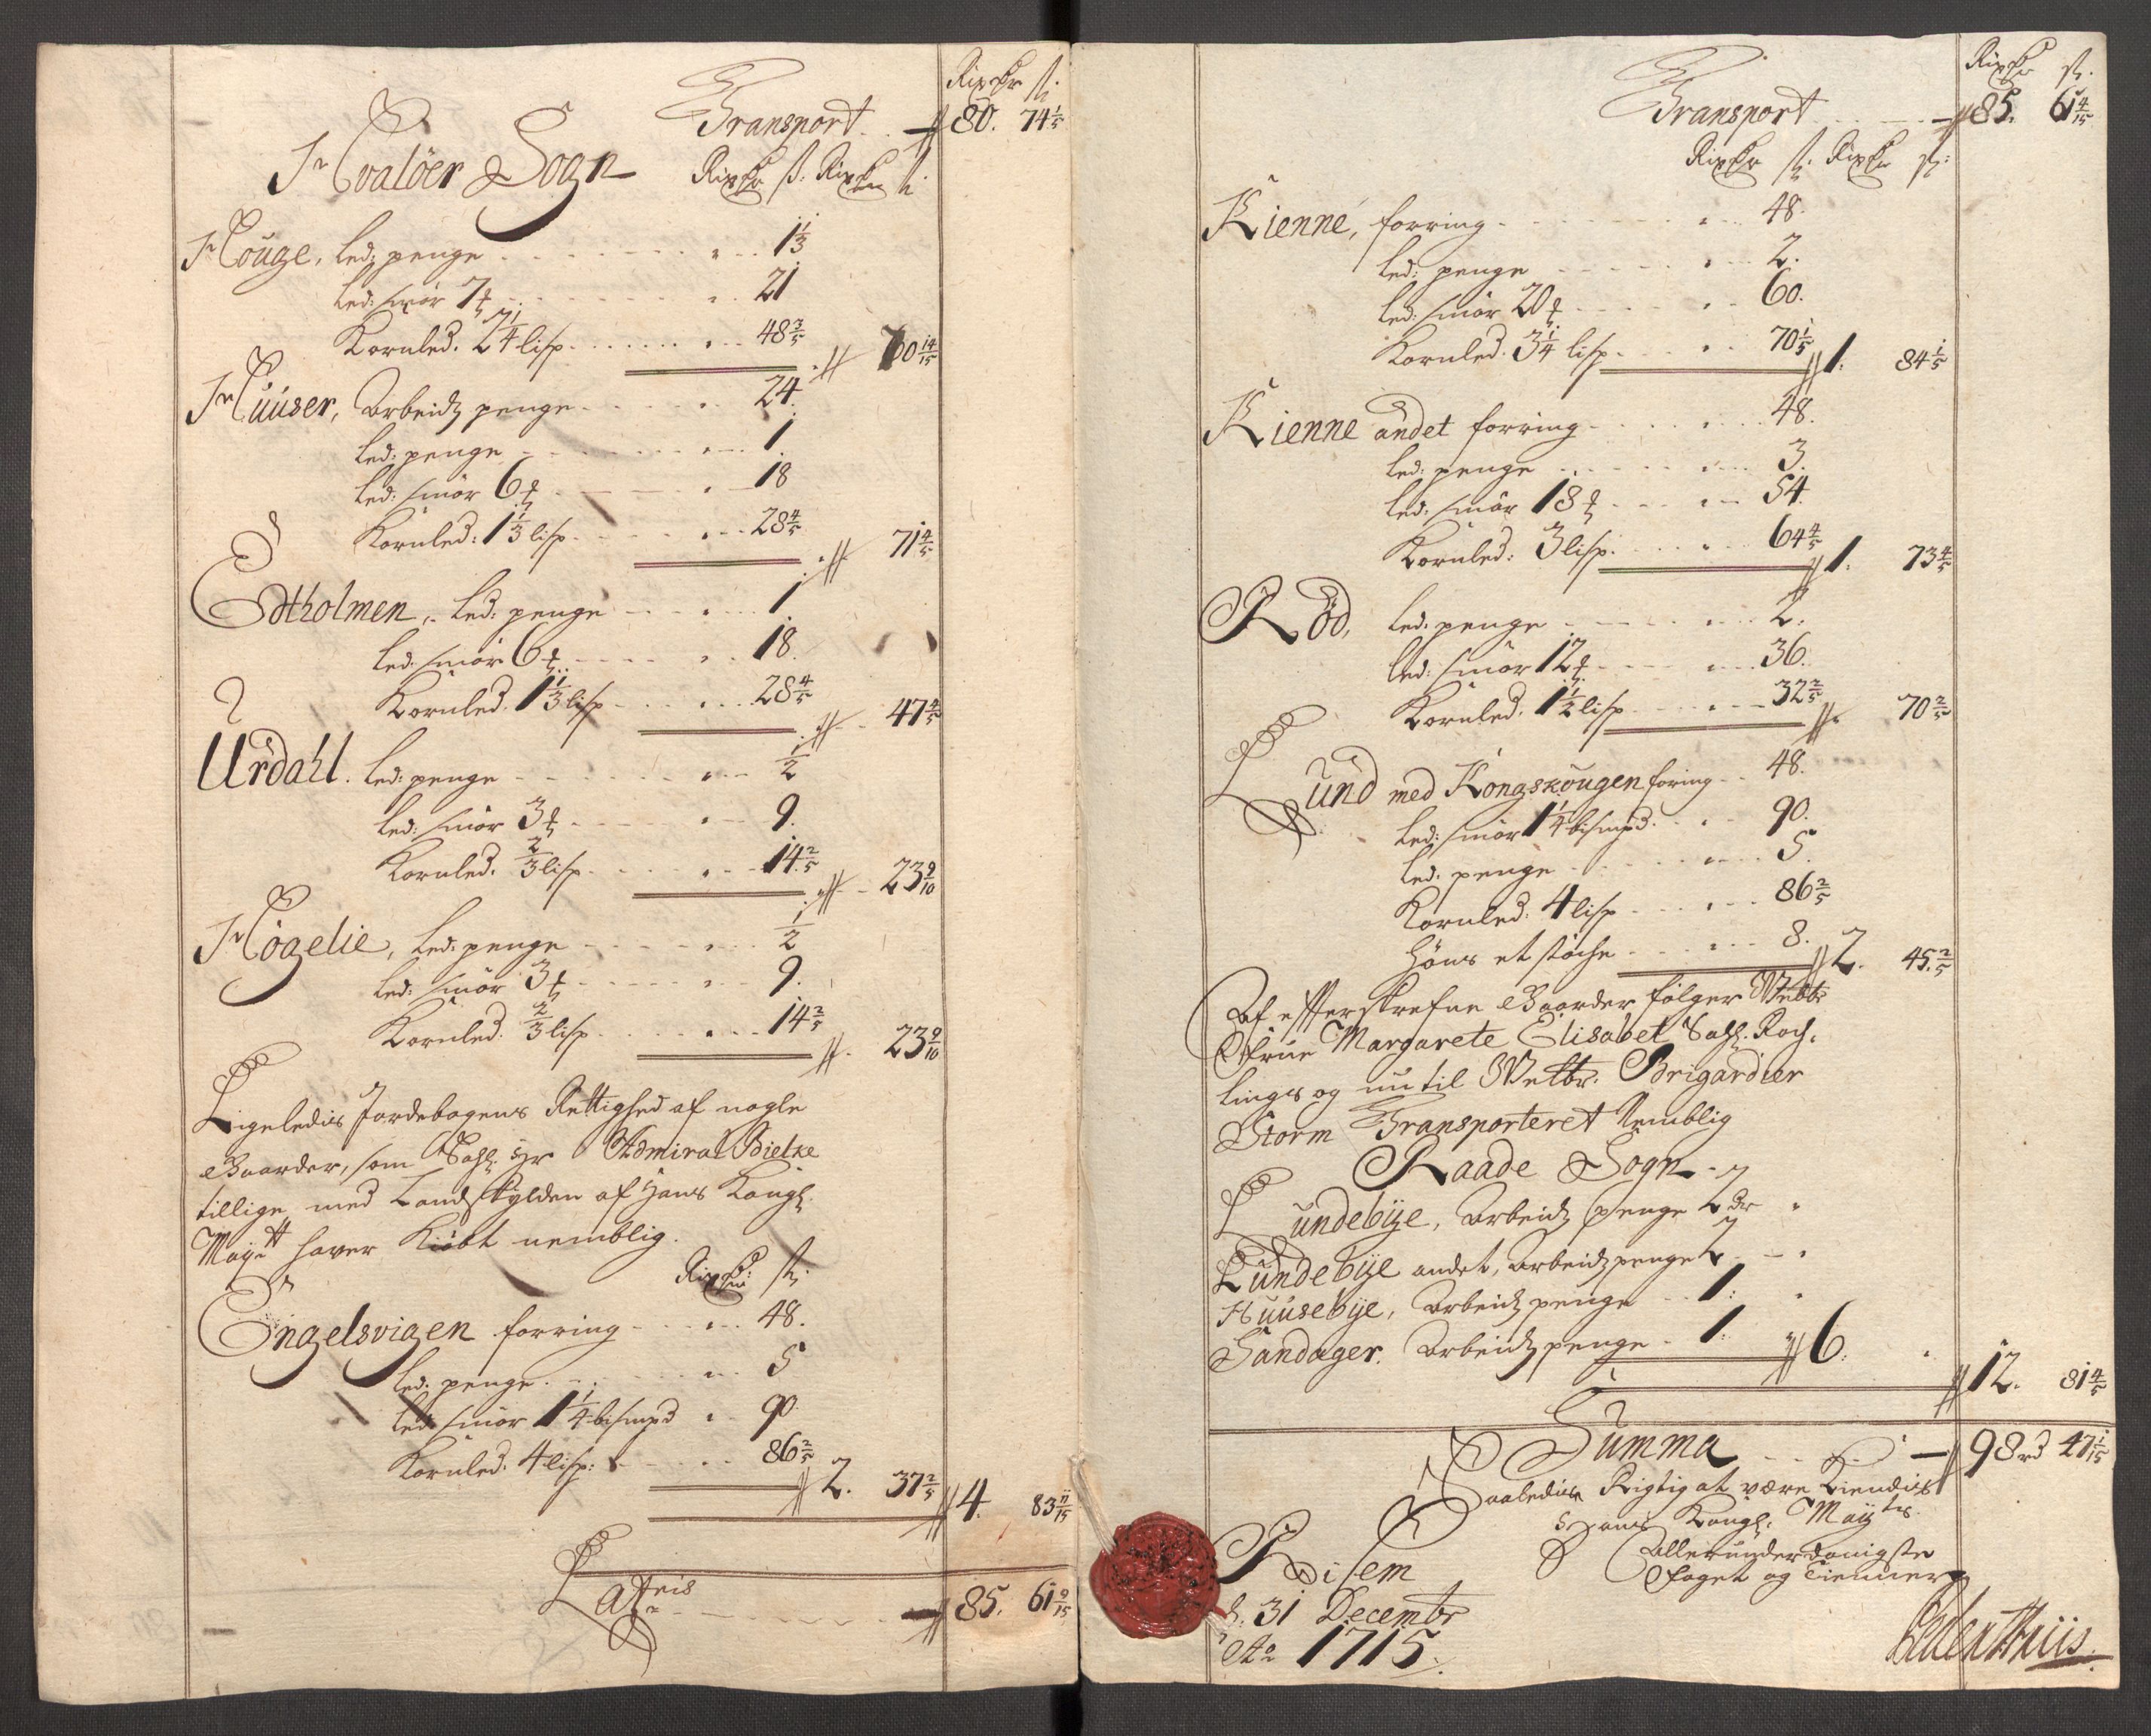 Rixdr ß:
Transport . . 80. 74 1/5
Hvalöer Sogn Rixdr ß: Rixdr ß:
Houge, Led: penge . . . 1 1/3
Led: smör 7 ℔ . . . 21
Kornled. 2 1/4 lisp . . . 48 3/5 70 14/15
Huuser, Arbeidz penge . . . 24.
Led: penge . . . 1.
Led: smör 6 ℔ . . . 18
Kornled: 1 1/3 lisp . . . 28 4/5 71 4/5
Edtholmen, Led: penge . . . 1
Led: smör 6 ℔ . . . 18.
Kornled. 1 1/3 lisp . . . 28 4/5 47 4/5
Urdahl. Led: penge . . . 1/2
Led: smör 3 ℔ . . . 9.
Kornled. 2/3 lisp . . . 14 2/5 23 9/10
Högelie, Led: penge . . . 1/2
Led: smör 3 ℔ . . . 9.
Kornled. 2/3 lisp . . . 14 2/5 23 9/10
Ligeledis Jordebogens Rettighed af nogle
Gaarder, som Sahl: Hr Admiral Bielke
tillige med Landskylden af Hans Kongl.
Mayett haver Kiöbt nemblig.
Rixdr: ß:
Engelsvigen forring . . . 48.
Led: penge . . . 5
Led: smör 1 1/4 bismpd . 90.
Kornled. 4 lisp: . . . 86 2/5 2. 37 2/5 4. 83 11/15
Lateris . . . 85. 61 9/15
Rixdr ß:
Transport . . . 85. 61 4/15
Rixdr ß: Rixdr ß:
Kienne, forring . . . 48.
Led: penge . . . 2.
Led: smör 20 ℔ . . . 60.
Kornled. 3 1/4 lisp . . . 70 1/5 1. 84 1/5
Kienne andet forring . . . 48.
Led: penge . . . 3.
Led: smör 18 ℔ . . . 54.
Kornled: 3 lisp. . . . 64 4/5 1. 73 4/5
Röd, Led: penge . . . 2.
Led: smör 12 ℔ . . . 36.
Kornled. 1 1/2 lisp . . . 32 2/5 70 2/5
Lund med Kongskougen foring . . 48.
Led: smör 1 1/4 bismpd. . . 90.
Led: penge . . . 5.
Kornled: 4 lisp . . . 86 2/5
Höns et støche . . . 8. 2. 45 2/5
Af efterskrefne Gaarder følger Welbr
Frue Margarete Elisabet Sahl. Roch-
lings og nu til Welbr. Brigardier
Storm Transporteret Nemblig
Raade Sogn
Lundebÿe, Arbeidz penge 2 dr .
Lundebÿe andet, Arbeidz penge 2 - .
Huusebÿe, Arbeidz penge . . 1: .
Sandager. Arbeidz penge . 1: 6: . 12. 81 4/5
Summa . . . 98 rd 47 1/15
Saaledis Rigtig at være Kiendis
Hans Kongl. Maÿts
Allerunderdanigste
Foget og Tienner
Risem
d. 31 Decembr
Ao 1715.
Peder Thiis